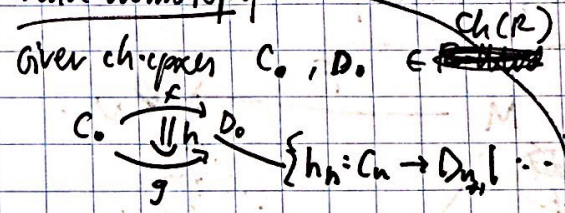 Given ch·cpxes C• , D• ∈ Ch(R)
f
C• ⇓ h D• {hₙ : Cₙ → Dₙ₊₁ | ...
g